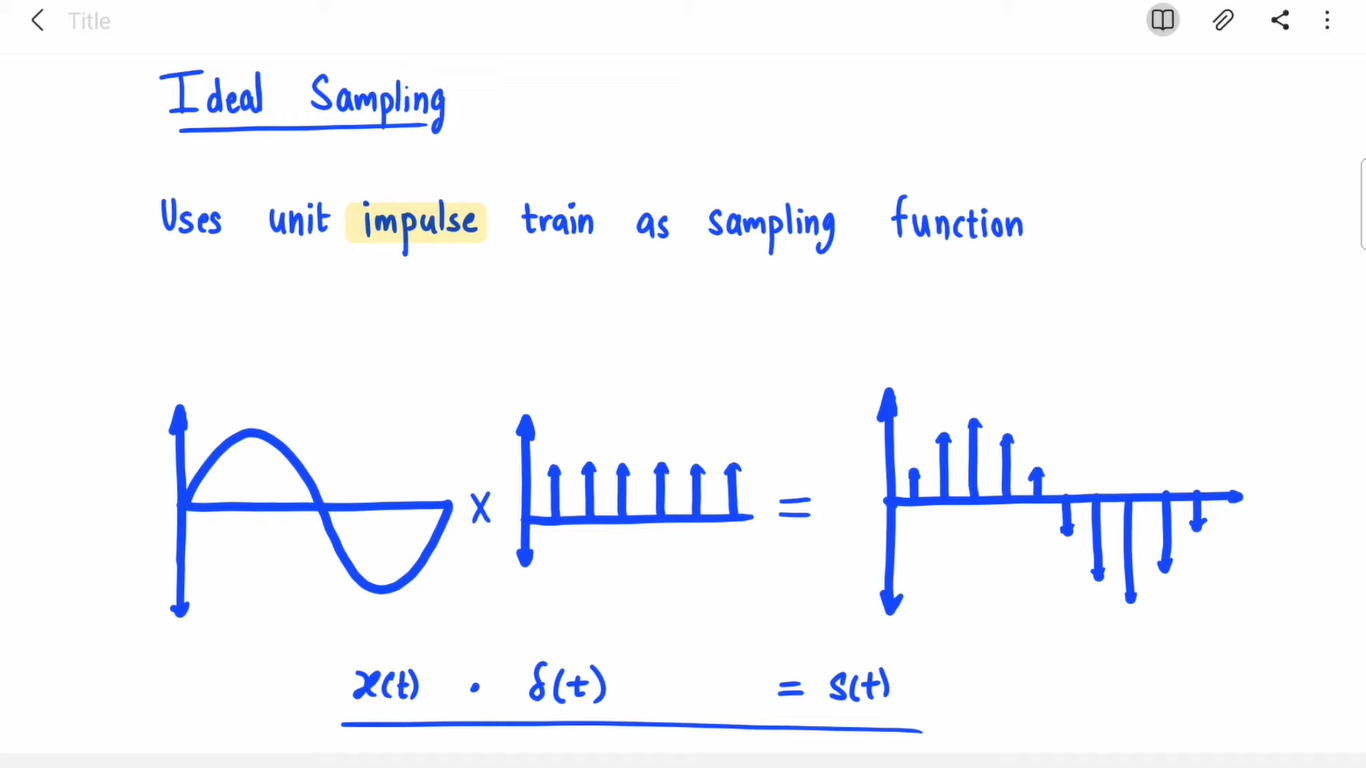 Title
Ideal Sampling
Uses unit impulse train as sampling function
x =
x(t) . δ(t) = s(t)